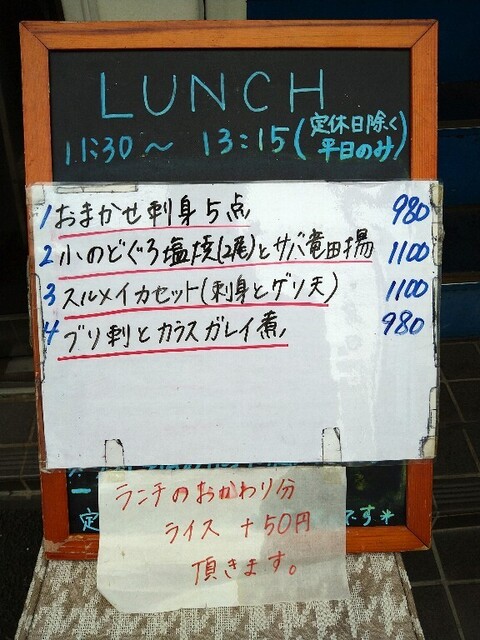 LUNCH
11:30～13:15(定休日除く平日のみ)
1 おまかせ刺身5点 980
2 小のどぐろ塩焼(2尾)とサバ竜田揚 1100
3 スルメイカセット(刺身とゲソ天) 1100
4 ブリ刺とカラスガレイ煮 980
ランチのおかわり分
ライス +50円
頂きます。
定
です*